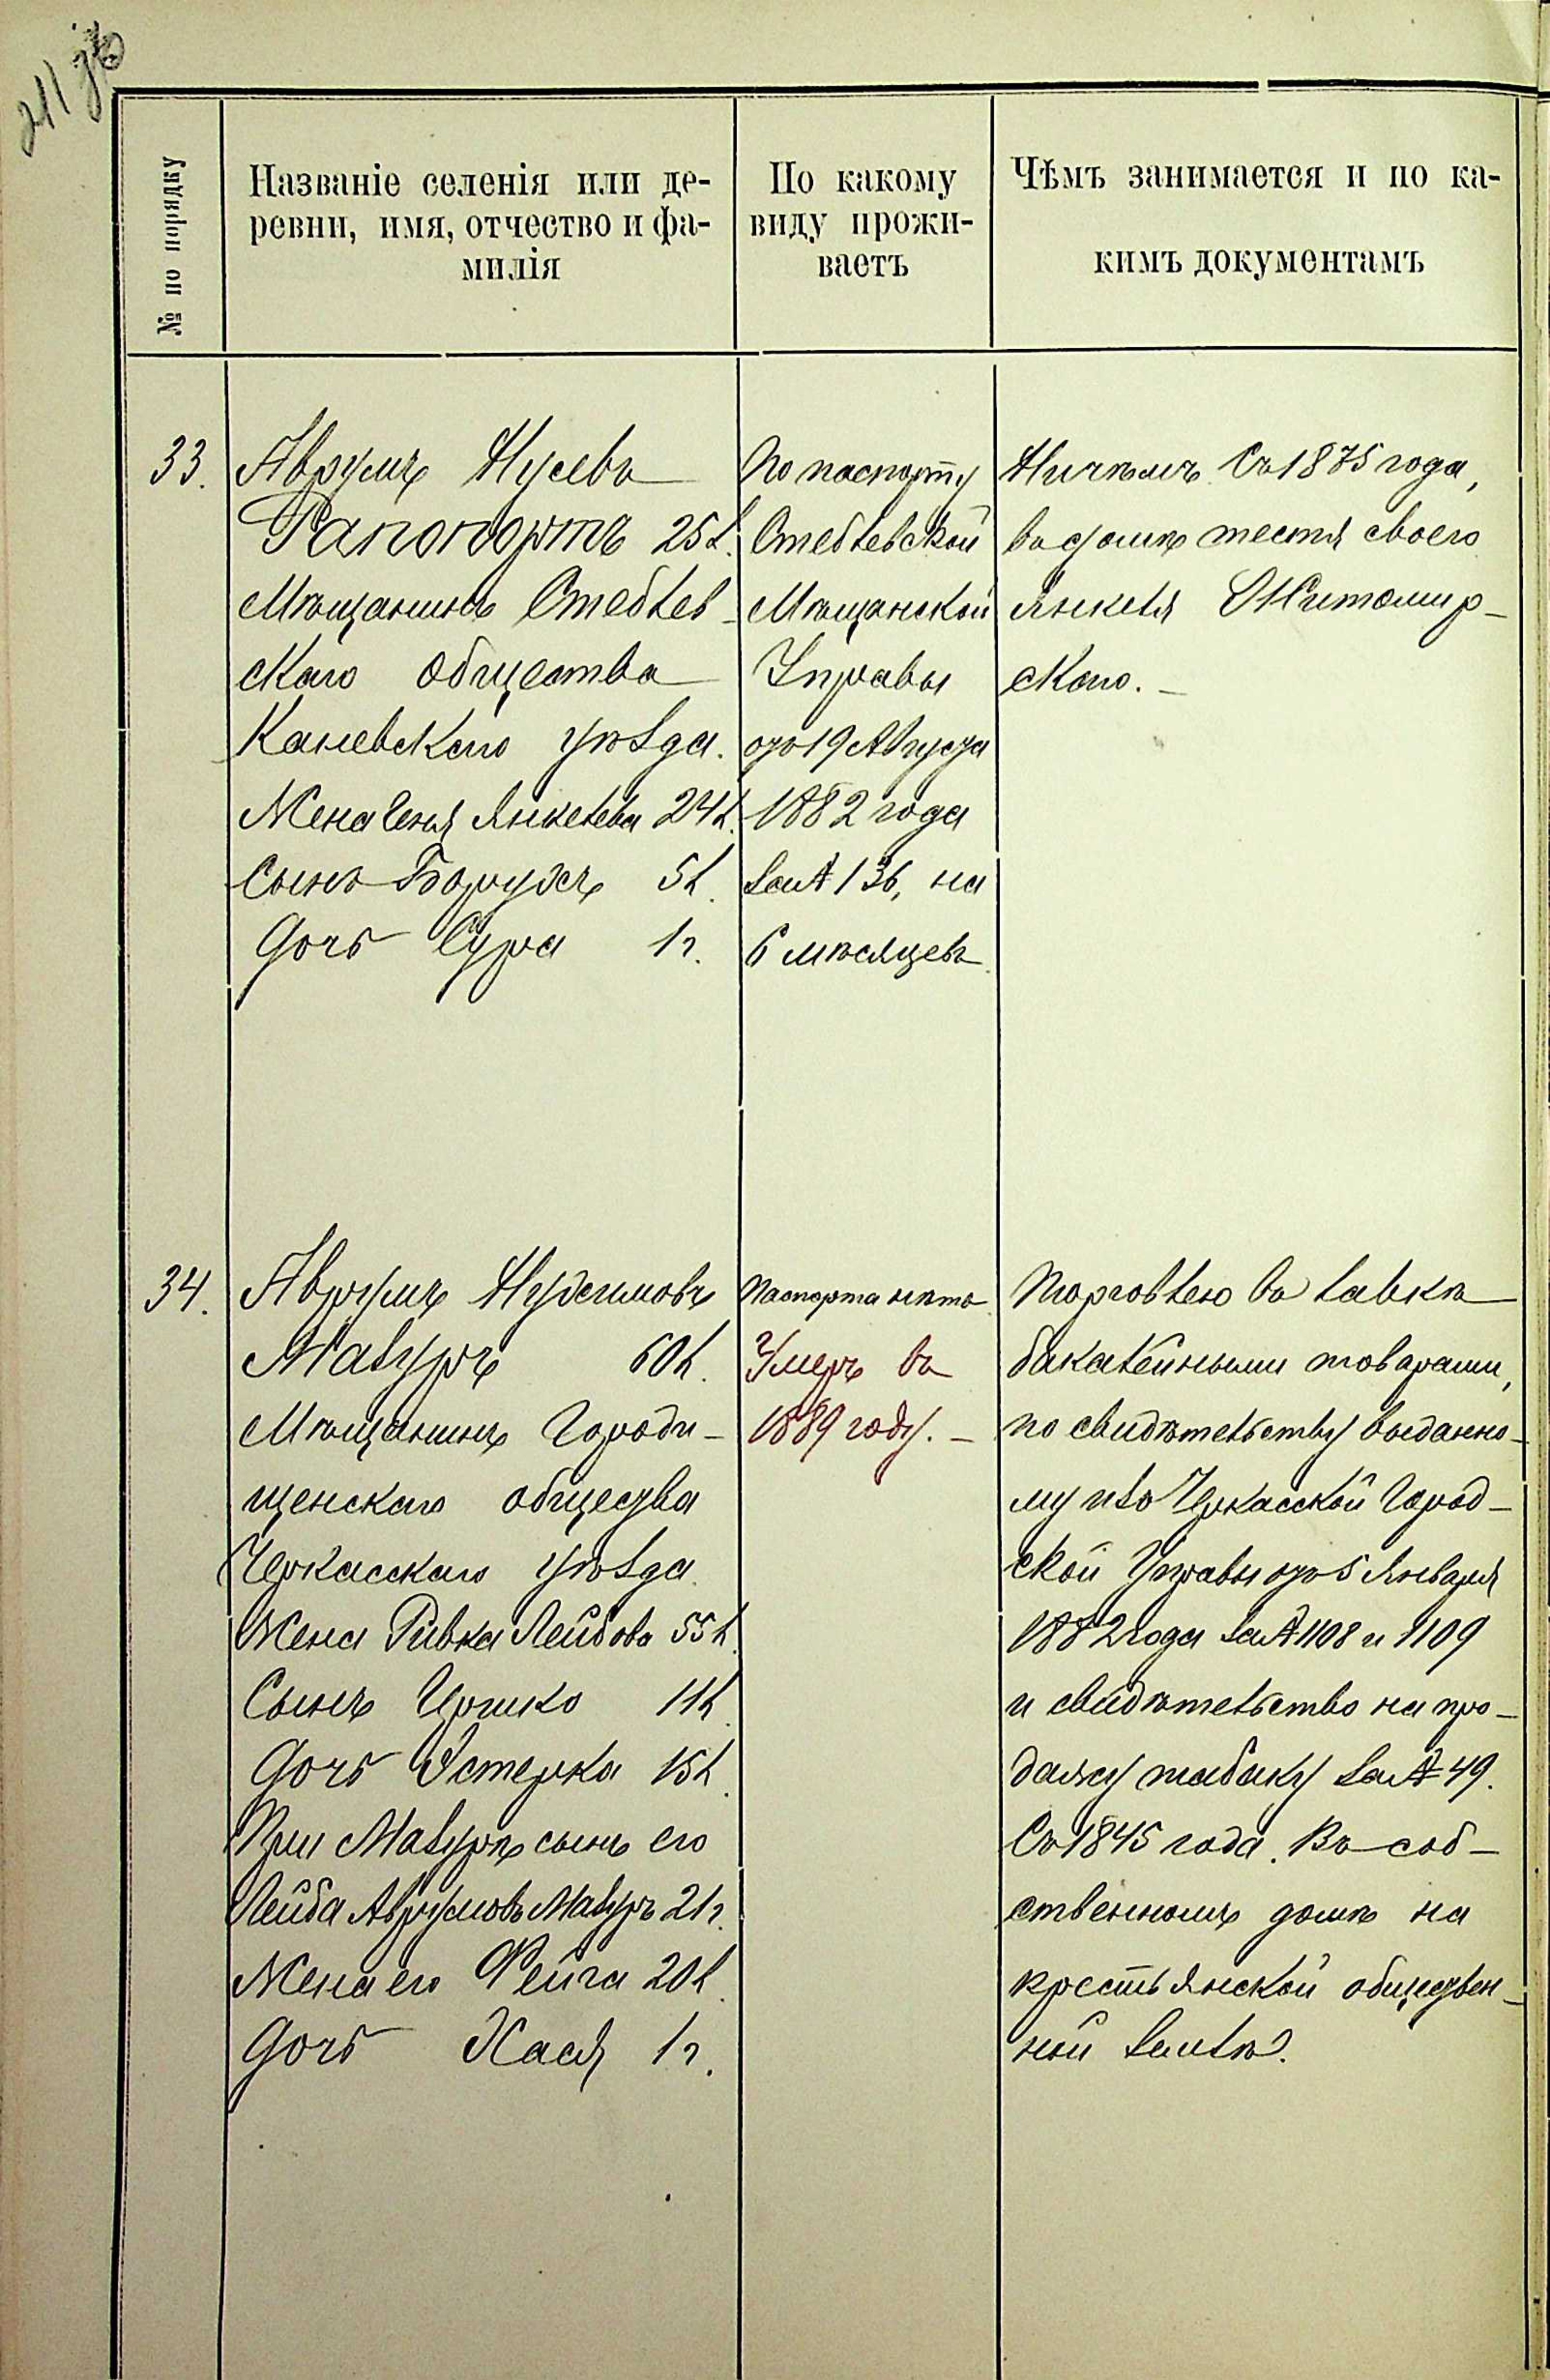 211 об
№ по порядку
Названіе селенія или де-
ревни, имя, отчество и фа-
милія
По какому
виду прожи-
ваетъ
Чѣмъ занимается и по ка-
кимъ документамъ
33.
Аврумъ Нусевъ
Рапопортъ 25 л.
Мѣщанинъ Стеблев-
скаго Общества
Каневскаго уѣзда.
Жена Геня Янкелева 24 л.
Сынъ Борухъ 5 л.
Дочь Сура 1 г.
По паспорту
Стеблевской
Мѣщанской
Управы
отъ 19 Августа
1882 года
за № 136, на
6 мѣсяцевъ
Ничѣмъ. Съ 1875 года,
въ домѣ тестя своего
Янкеля Житомир-
скаго. –
34.
Аврумъ Нухимовъ
Мазуръ 60 л.
Мѣщанинъ Городи-
щенскаго общества
Черкасскаго уѣзда.
Жена Ривка Лейбова 55 л.
Сынъ Ицко 11 л.
Дочь Эстерка 15 л.
При Мазурѣ сынъ его
Лейба Аврумовъ Мазуръ 21 г.
Жена его Фейга 20 л.
Дочь Хася 1 г.
Паспорта нѣтъ
Умеръ въ
1889 году. –
Торговлею въ лавкѣ
бакалейными товарами,
по свидѣтельству выданно-
му изъ Черкасской Город-
ской Управы отъ 5 Января
1882 года за № 1108 и 1109
и свидѣтельство на про-
дажу табаку за № 49.
Съ 1845 года. Въ соб-
ственномъ домѣ на
крестьянской обществен-
ной землѣ.